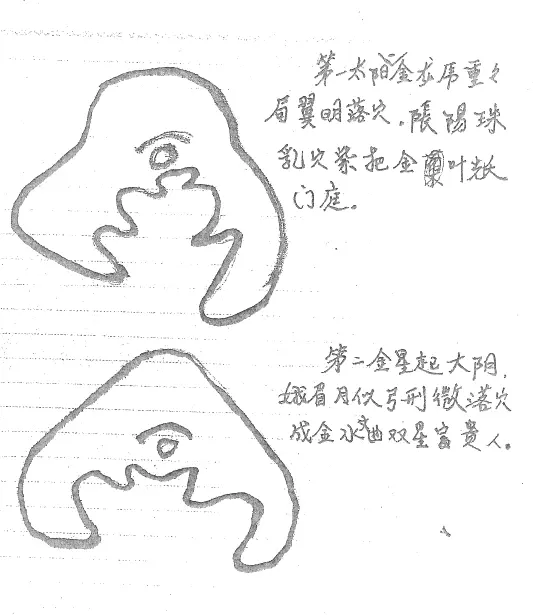 第一太阳金龙虎重々
局翼明落穴。脹陽珠
乳穴紫把金叶光
门庭。
第二金星起太阳,
娥眉月似弓刑微落穴
成金水曲双星富贵人。